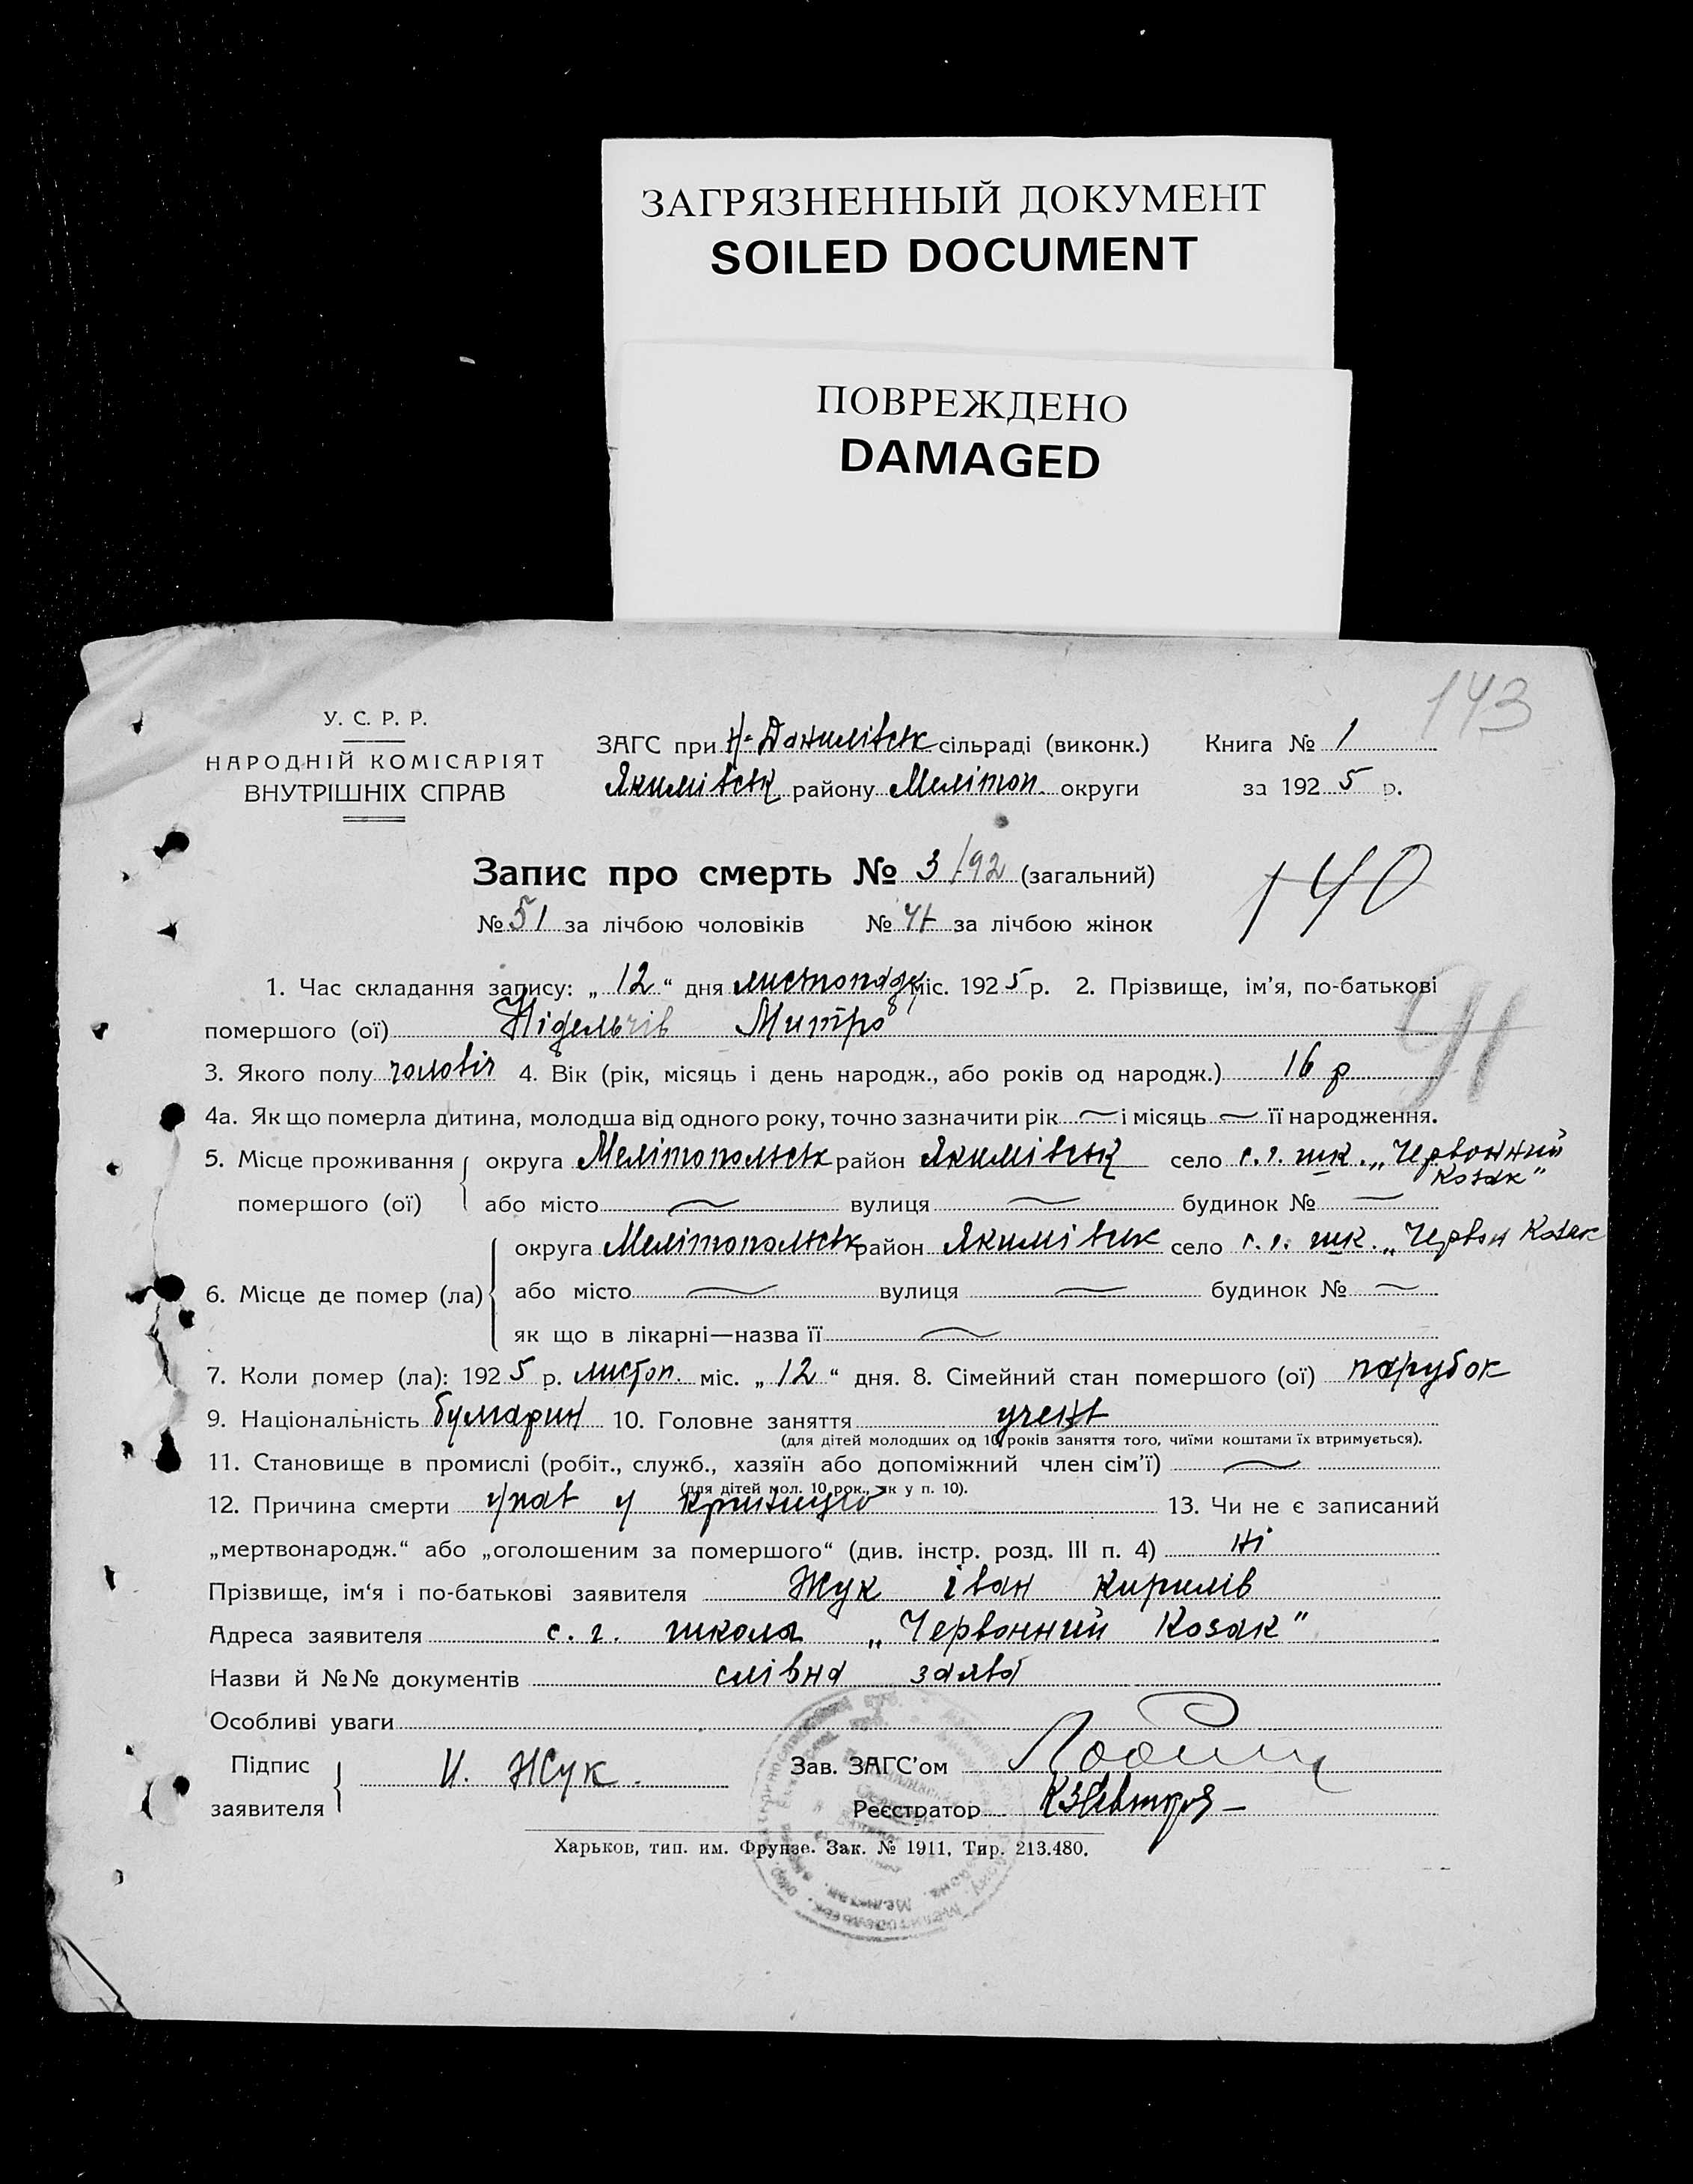 ЗАГРЯЗНЕННЫЙ ДОКУМЕНТ
SOILED DOCUMENT
ПОВРЕЖДЕНО
DAMAGED
143
У. С. Р. Р.
НАРОДНІЙ КОМІСАРІЯТ
ВНУТРІШНІХ СПРАВ
ЗАГС при Н-Данилівськ сільраді (виконк.) Книга № 1
Якимівськ району Мелітоп. округи за 1925 р.
Запис про смерть № 3/92 (загальний)
140
№ 51 за лічбою чоловіків № 41 за лічбою жінок
1. Час складання запису: „ 12 “ дня листопада міс. 1925 р. 2. Прізвище, ім’я, по-батькові
помершого (ої) Нідельчів Митро
91
3. Якого полу чоловіч 4. Вік (рік, місяць і день народж., або років од народж.) 16 р
4а. Як що померла дитина, молодша від одного року, точно зазначити рік і місяць її народження.
5. Місце проживання помершого (ої) округа Мелітопольськ район Якимівськ село с.г. шк. „Червонний Козак“
або місто вулиця будинок №
6. Місце де помер (ла) округа Мелітопольськ район Якимівськ село с.г. шк. „Червон Козак
або місто вулиця будинок №
як що в лікарні—назва її
7. Коли помер (ла): 1925 р. листоп. міс. „ 12 “ дня. 8. Сімейний стан помершого (ої) парубок
9. Національність булгарин 10. Головне заняття учень
(для дітей молодших од 10 років заняття того, чиїми коштами їх втримується).
11. Становище в промислі (робіт., служб., хазяїн або допоміжний член сім’ї)
(для дітей мол. 10 рок., як у п. 10).
12. Причина смерти упав у криницю 13. Чи не є записаний
„мертвонародж.“ або „оголошеним за помершого“ (див. інстр. розд. III п. 4) ні
Прізвище, ім‘я і по-батькові заявителя Жук Іван Кирилів
Адреса заявителя с. г. школа „Червонний Козак“
Назви й №№ документів слівна заява
Особливі уваги
Підпис заявителя И. Жук. Зав. ЗАГС’ом
Реєстратор
Харьков, тип. им. Фрунзе. Зак. № 1911, Тир. 213.480.